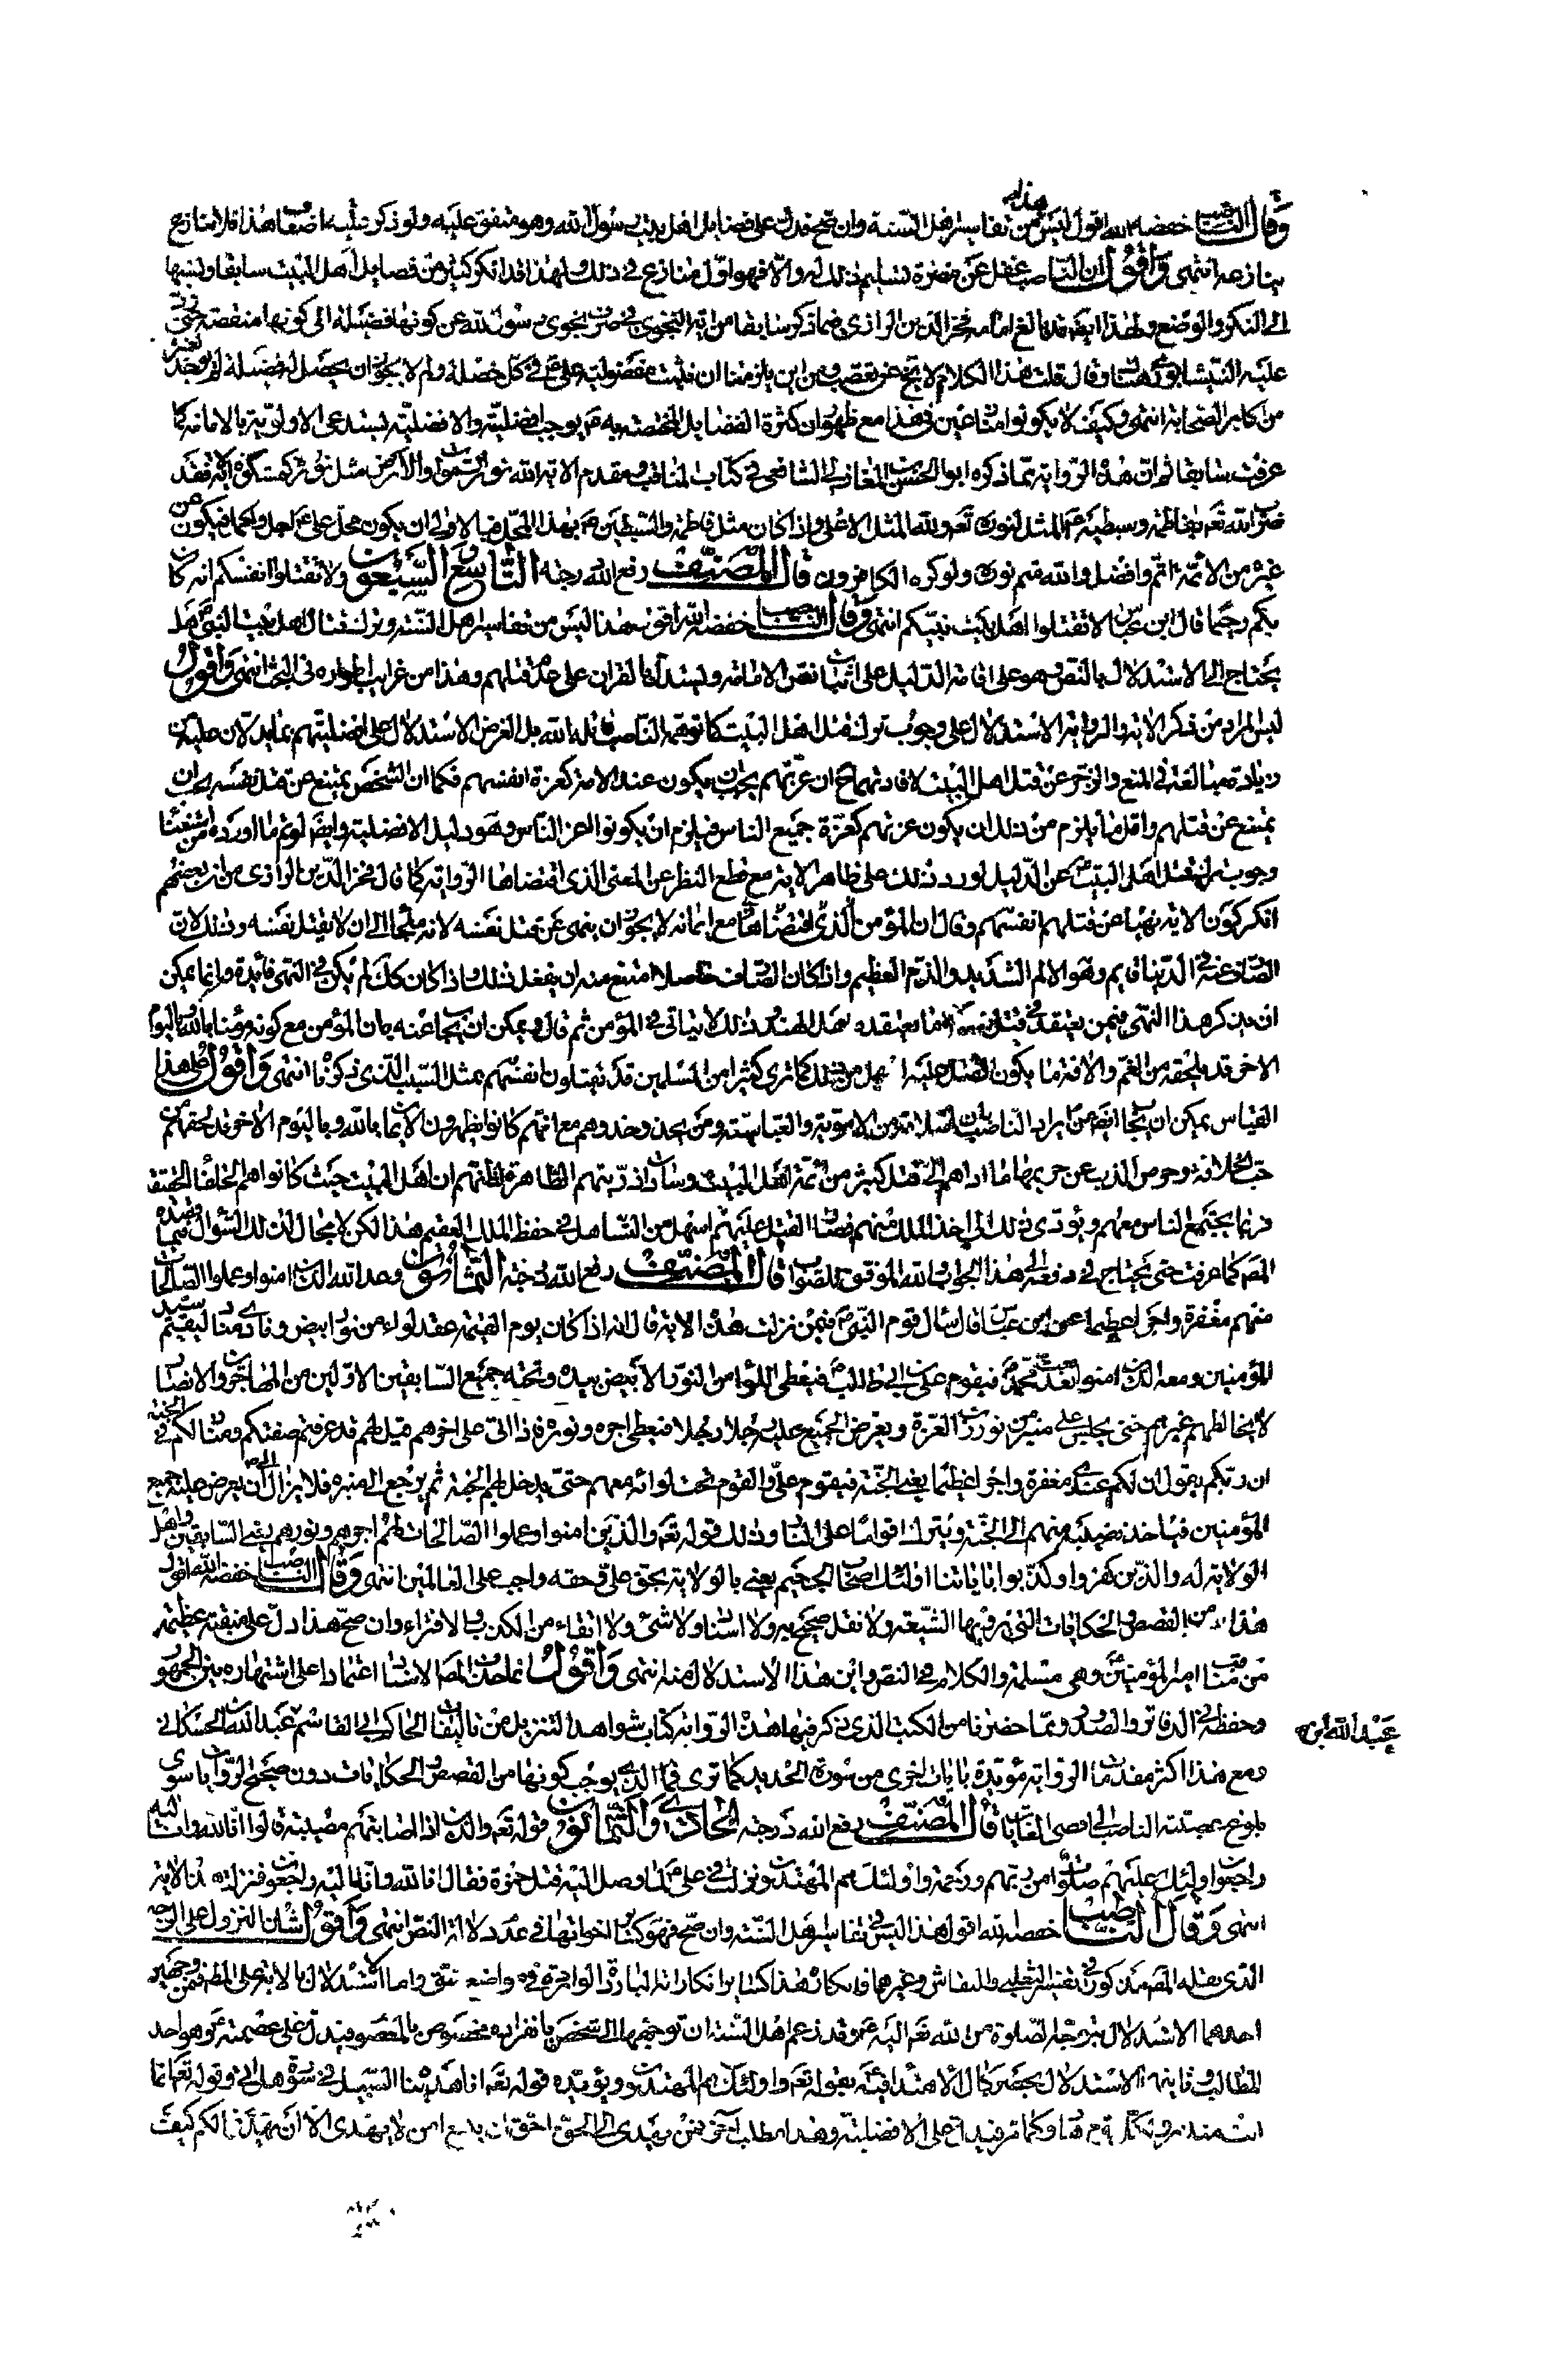 وقال الناصب خفضه الله اقول ليس هذا من تفاسير اهل السنة وان صح فدل على فضايل اهل بيت رسول الله وهو متفق عليه ولو ذكر مثلبه اضعاف هذا فلا منازع
ينازعه انتهى واقول ان الناصب غفل عن حضرة تسليم ذلك له والا فهو اول منازع في ذلك ولهذا قد انكر كثيرا من فضايل اهل البيت سابقا ونسبها
الى النكر والوضع ولهذا ايضا قد بالغ امامه فخر الدين الرازي فيما ذكر سابقا من اية النجوى في صرف نجوى رسول الله عن كونها فضيلة الى كونها منقصة حتى
عليه النيشابوري هناك وقال قلت هذا الكلام لا يخ عن تعصب ومن اين يلزمنا ان نثبت مفضولية على ع في كل خصلة ولم لا يجوز ان يحصل له فضيلة لم توجد لغيره
من اكابر الصحابة انتهى وكيف لا يكونوا منازعين في هذا مع ظهور ان كثرة الفضايل المختصة به ع يوجب افضليته والافضلية تستدعى الاولوية بالامامة كما
عرفت سابقا ثم ان هذه الرواية مما ذكره ابو الحسن المغازلي الشافعي في كتاب المناقب ومقدم الاية الله نور السموات والارض مثل نوره كمشكوة الاية فقد
ضرب الله تعم بفاطمة وسبطيه ع المثل لنوره تعم ولله المثل الاعلى واذا كان مثل فاطمة والسبطين ع بهذا المحل فبالاولى ان يكون محل على ع اجل واكمل فيكون من
غيره من الائمة اتم وافضل والله متم نوره ولو كره الكافرون قال المصنف رفع الله درجته التاسع السبعون ولا تقتلوا انفسكم انه كان
بكم رحيما قال ابن عباس لا تقتلوا اهل بيت نبيكم انتهى وقال الناصب خفضه الله اقول هذا ليس من تفاسير اهل السنة وترك قتال اهل بيت النبي ص هل
يحتاج الى الاستدلال بالنص وهو على اقامة الدليل على اثبات نص الامامة ويستدل بالقران على عدم قتلهم وهذا من غرايب اطواره في البحث انتهى واقول
ليس المراد من ذكر الاية والرواية الاستدلال على وجوب ترك قتل اهل البيت كما توهمه الناصب قاتله الله بل الغرض الاستدلال على افضليتهم بما يدل الان عليه من
زيادة مبالغة في المنع والزجر عن قتل اهل البيت لافادتهما ح ان عزتهم يجب ان يكون عند الامة كعزة انفسهم فكما ان الشخص يمتنع عن قتل نفسه يجب ان
يمتنع عن قتلهم واقل ما يلزم من ذلك ان يكون عزتهم كعزة جميع الناس فيلزم ان يكونوا اعز الناس وهو دليل الافضلية وايضا لو تم ما اورده من استغناء
وجوب ترك قتل اهل البيت عن الدليل لورد ذلك على ظاهر الاية مع قطع النظر عن المعنى الذي اقتضاها الرواية كما قال فخر الدين الرازي من ان بعضهم
انكر كون الاية نهيا عن قتلهم انفسهم وقال ان المؤمن مع ايمانه لا يجوز ان ينهى عن قتل نفسه لانه ملجأ الى ان لا يقتل نفسه وذلك لان
الصارف عنه في الدنيا قايم وهو الالم الشديد والذم العظيم واذا كان الصارف حاصلا امتنع منه ان يفعل ذلك واذا كان كك لم يكن في النهى فايدة وانما يمكن
ان يذكر هذا النهى فيمن يعتقد في قتل نفسه ما يعتقده اهل الهند وذلك لا يتاتى في المؤمن ثم قال ويمكن ان يجاب عنه بان المؤمن مع كونه مؤمنا بالله واليوم
الاخر قد يلحقه من الغم والاذية ما يكون القتل عليه اسهل من ذلك كما ترى كثيرا من المسلمين قد يقتلون انفسهم بمثل السبب الذي ذكرناه انتهى واقول على هذا
القياس يمكن ان يجاب ايضا عن ايراد الناصب بان الخلافة من الاموية والعباسية ومن يحذو حذوهم مع انهم كانوا يظهرون الايمان بالله وباليوم الاخر قد يلحقهم من
حب الخلافة وحرص الذب عن حريمها ما اداهم الى قتل كثير من ائمة اهل البيت وسادات ذريتهم الطاهرة لظنهم ان اهل البيت حيث كانوا هم الخلفاء الحقيقة
فربما يجتمع الناس معهم ويؤدى ذلك الى اخذ الملك منهم فصار القتل عليهم اسهل من التساهل في حفظ الملك العقيم هذا لكن لا مجال لذلك السؤال فيما قصده
المصه كما عرفت حتى يحتاج في دفعه الى هذا الجواب والله الموفق للصواب قال المصنف رفع الله درجته الثمانون وعد الله الذين امنوا وعملوا الصالحات
منهم مغفرة واجرا عظيما عن ابن عباس قال سال قوم النبي ص فيمن نزلت هذه الاية قال اذا كان يوم القيمة عقد لواء من نور ابيض ونادى مناد ليقم سيد
المؤمنين ومعه الذين امنوا بعد بعث محمد ص فيقوم على بن ابي طالب ع فيعطى اللواء من النور الابيض بيده وتحته جميع السابقين الاولين من المهاجرين والانصار
لا يخالطهم غيرهم حتى يجلس على منبر من نور رب العزة ويعرض الجميع عليه رجلا رجلا فيعطى اجره ونوره فاذا اتى على اخرهم قيل لهم قد عرفتم صفتكم ومنازلكم في الجنة
ان ربكم يقول ان لكم عندي مغفرة واجرا عظيما يعني الجنة فيقوم على والقوم تحت لوائه معهم حتى يدخل بهم الجنة ثم يرجع الى منبره فلا يزال الى ان يعرض عليه جميع
المؤمنين فياخذ نصيبه منهم الى الجنة ويترك اقواما على النار وذلك قوله تعم والذين امنوا وعملوا الصالحات لهم اجرهم ونورهم يعني السابقين واهل
الولاية له والذين كفروا وكذبوا باياتنا اولئك اصحاب الجحيم يعني بالولاية بحق على وحقه واجب على العالمين انتهى وقال الناصب خفضه الله اقول
هذا من القصص والحكايات التي ترويها الشيعة ولا نقل صحيح به ولا اسناد ولا شئ ولا اتقاء من الكذب والافتراء وان صح هذا دل على منقبة عظيمة
من مناقب امير المؤمنين ع وهي مسلمة والكلام في النص واين هذا الاستدلال منه انتهى واقول انما حذف المصه الاسناد اعتمادا على اشتهاره بين الجمهور
وحفظه في الدفاتر والصدور ومما حضرنا من الكتب الذي ذكر فيها هذه الرواية كتاب شواهد التنزيل من تاليفات الحاكم ابي القاسم عبد الله الحسكاني
عبيد الله ابن
ومع هذا اكثر مقدمات الرواية مؤيدة بايات اخرى من سورة الحديد كما ترى فما الذي يوجب كونها من القصص والحكايات دون صحيح الروايات سوى
بلوغ عصبية الناصب الى اقصى الغايات قال المصنف رفع الله درجته الحادي والثمانون قوله تعم والذين اذا اصابتهم مصيبة قالوا انا لله وانا اليه
راجعون اولئك عليهم صلوات من ربهم ورحمة واولئك هم المهتدون نزلت في على ع لما وصل اليه قتل حمزة فقال انا لله وانا اليه راجعون فنزلت هذه الاية
انتهى وقال الناصب خفضه الله اقول هذا ليس في تفاسير اهل السنة وان صح فهو كساير اخواتها في عدم دلالة النص انتهى واقول شان النزول على الوجه
الذي نقله المصه مذكور في تفسير الثعلبي والنقاش وغيرهما فانكار هذا كساير انكاراته الباردة الواقعة في مواضع شتى واما الاستدلال بالاية على المط فمن وجهين
احدهما الاستدلال بتوجه الصلوة من الله تعم اليه ع وقد زعم اهل السنة ان توجهها الى شخص بانفراده مخصوص بالمعصوم فيدل على عصمته ع وهو احد
المطالب وثانيهما الاستدلال بحصر كمال الاهتداء فيه بقوله تعم واولئك هم المهتدون ويؤيده قوله تعم انا هديناه السبيل في سورة هل اتى وقوله تعم انما
انت منذر ولكل قوم هاد وكلما تر فيدل على الافضلية وهذا مطلب اخر فمن يهدي الى الحق احق ان يتبع امن لا يهدى الا ان يهدى فما لكم كيف